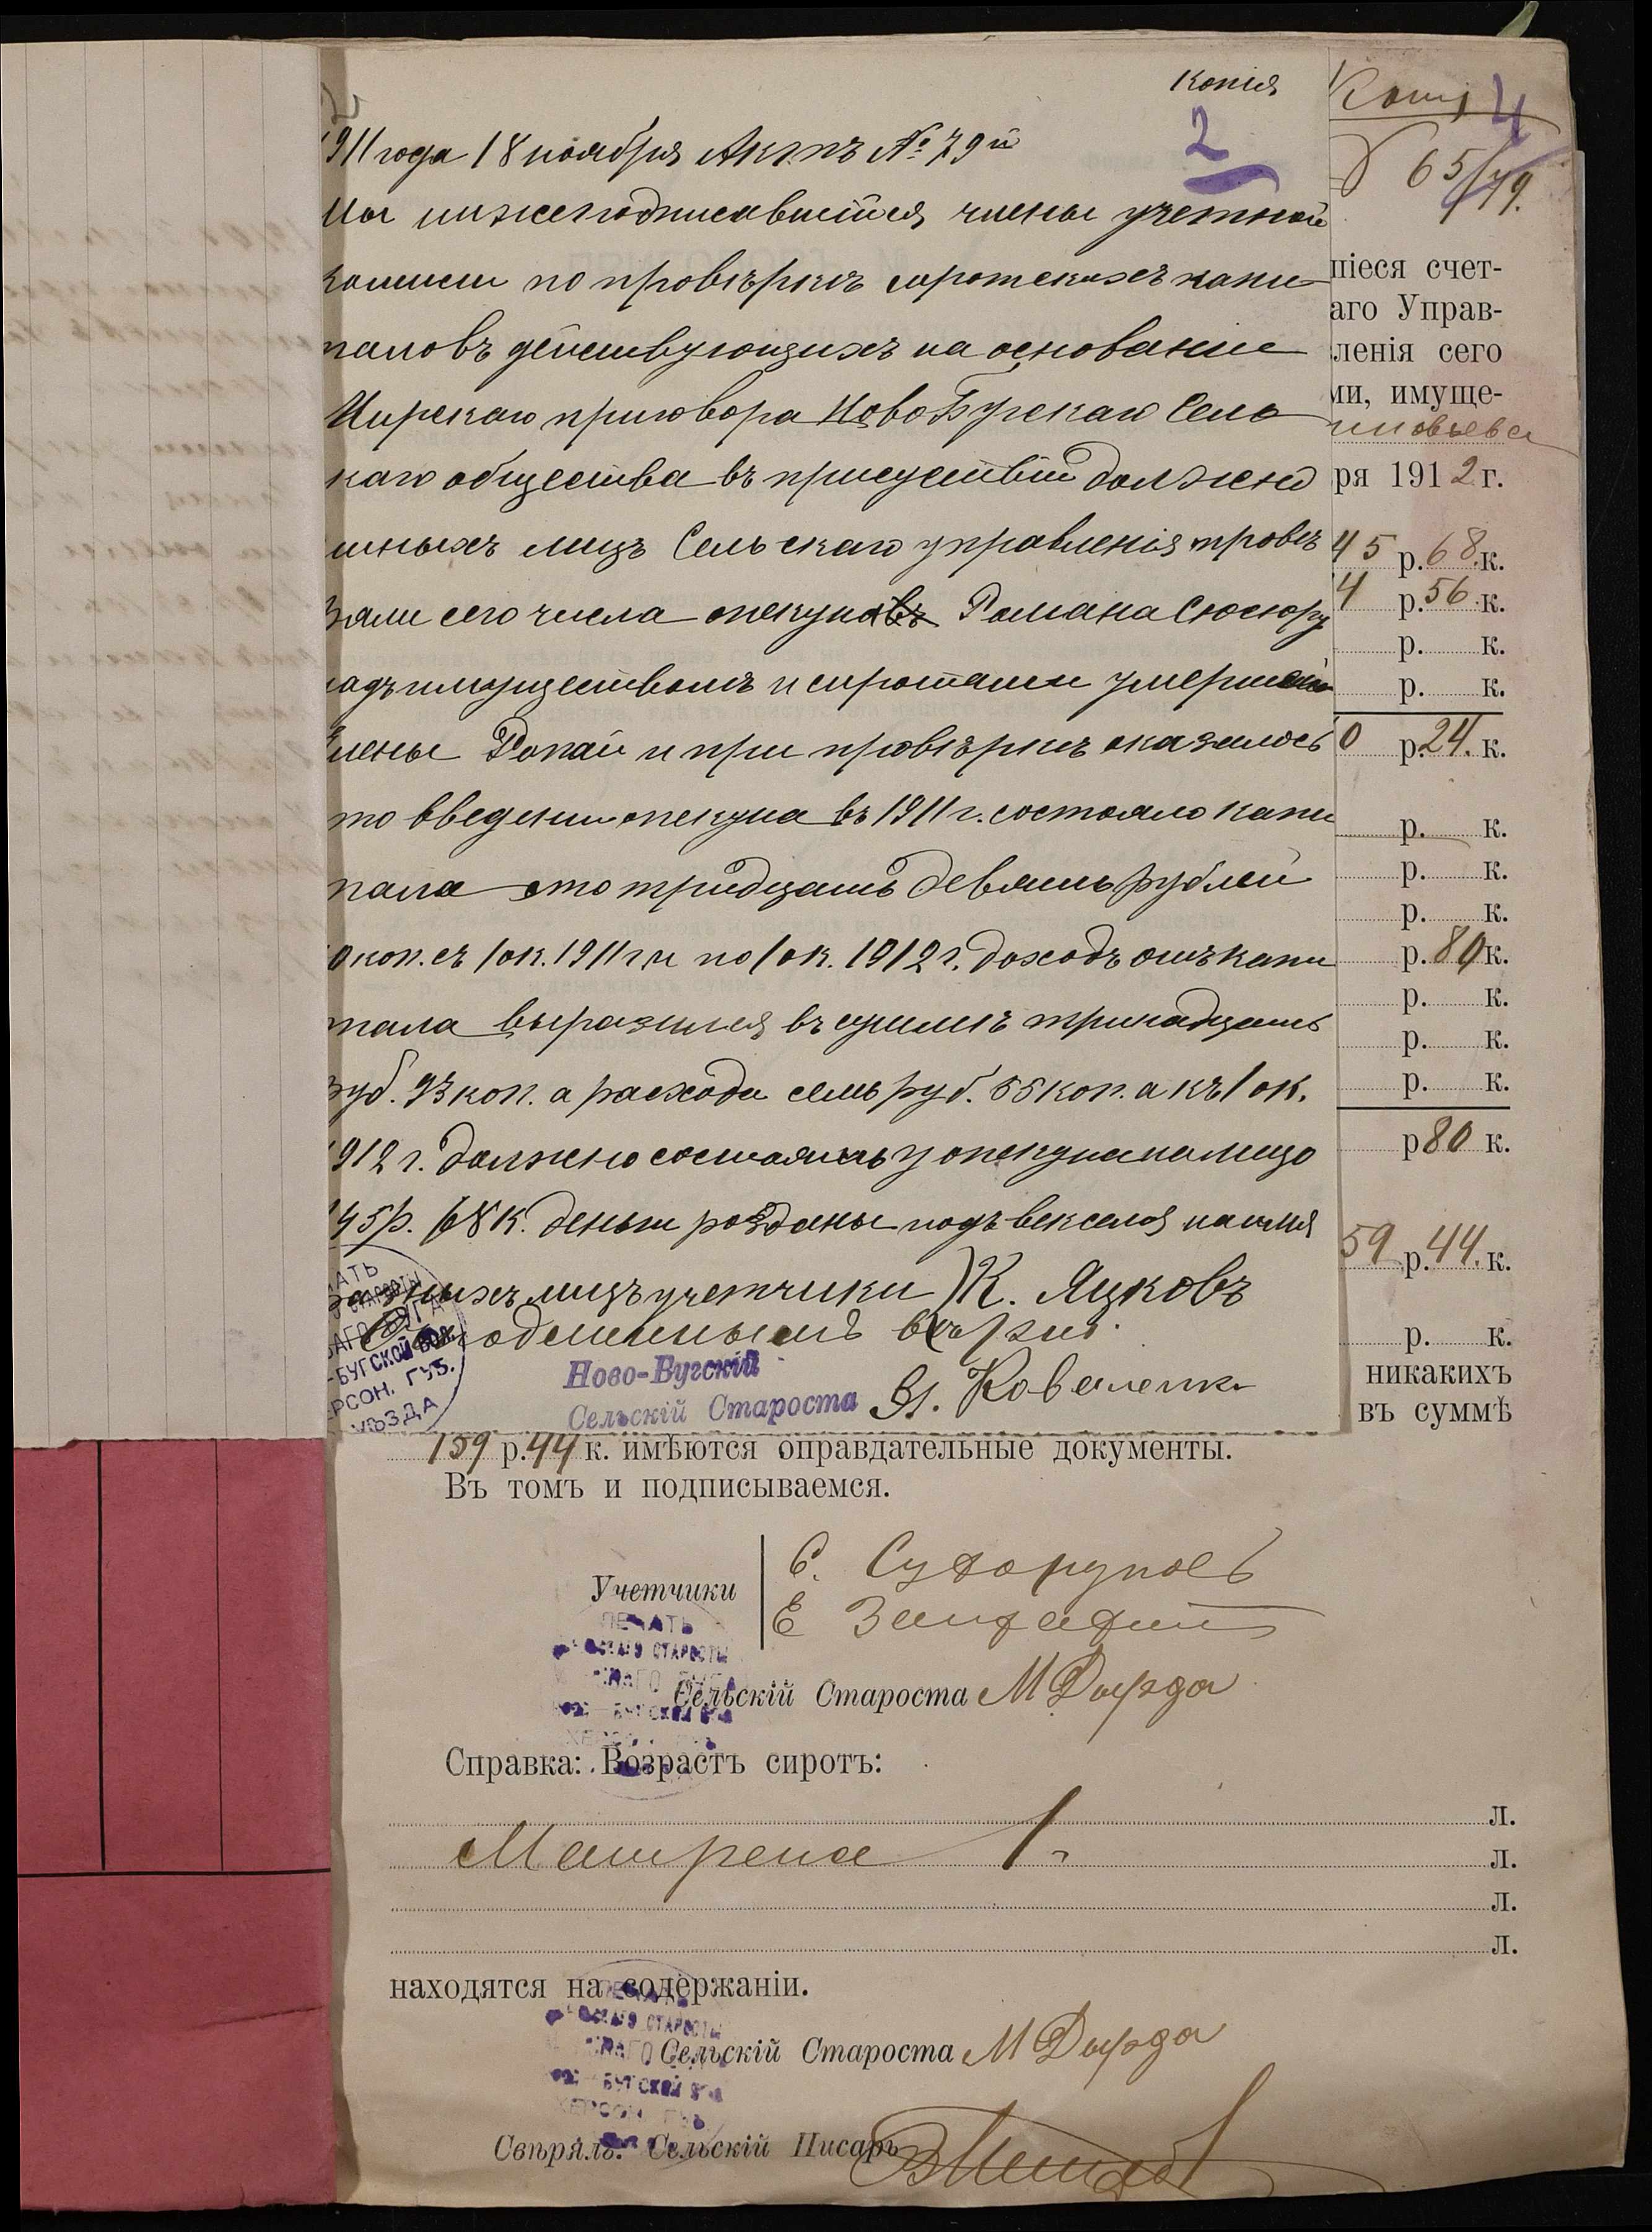 Копія
2
1911 года 18 ноября Актъ № 79й
Мы нижеподписавшіися члены учетной
комисіи по провѣркѣ сиротскихъ капи
таловъ действующихъ на основаніе
Мирскаго приговора Ново Бугскаго Сель
скаго общества въ присуствіи должно
стныхъ лицъ Сельскаго управленія провѣ
ряли сего числа опекуна Романа Сюсюру
надъ имуществомъ и сиротами умершей
Елены Ропай и при провѣркѣ оказалось
что введеніи опекуна въ 1911 г. состояло капи
тала сто тридцать девять рублей
0 коп. съ 1 ок. 1911 г. и по 1 ок. 1912 г. доходъ отъ капи
тала выразился въ сумме тринадцать
руб. 93 коп. а расхода семь руб. 55 коп. а къ 1 ок.
1912 г. должно состоять у опекуна налицо
145 р. 68 к. деньги розданы подъ векселя на имя
разныхъ лицъ учетчики К. Яцковъ
С подлиннымъ вѣрно.
Ново-Бугскій
Сельскій Староста Я. Коваленко
БУГСКОЙ ВОЛ.
ХЕРСОН. ГУБ.
УѢЗДА
Копія 4
65/79.
шіеся счет-
аго Управ-
ленія сего
ми, имуще-
ря 1912 г.
45 р. 68 к.
4 р. 56 к.
р. к.
р. к.
0 р. 24 к.
р. к.
р. к.
р. к.
р. 80 к.
р. к.
р. к.
р. к.
р 80 к.
59 р. 44 к.
р. к.
никакихъ
въ суммѣ
159 р. 44 к. имѣются оправдательные документы.
Въ томъ и подписываемся.
Учетчики
С. Сухоруковъ
Е
ПЕЧАТЬ
Сельскій Староста М Дырда
Справка: Возрастъ сиротъ:
л.
Матрена 1 л.
л.
л.
находятся на содержаніи.
Сельскій Староста М Дырда
Свѣрялъ: Сельскій Писарь